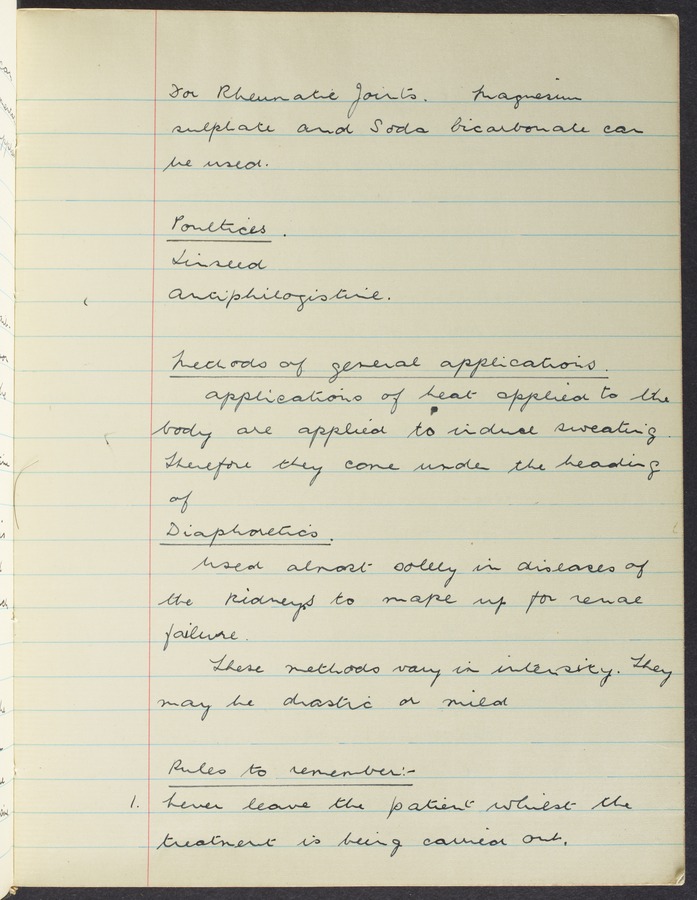 For Rheumatic Joints. Magnesium
sulphate and Soda bicarbonate can
be used.
Poultices.
Linseed
Antiphilogistine.
Methods of general applications.
applications of heat applied to the
body are applied to induce sweating.
Therefore they come under the heading
of
Diaphoretics.
Used almost solely in diseases of
the kidneys to make up for renal
failure.
These methods vary in intensity. They
may be drastic or mild
Rules to remember:-
1. Never leave the patient whilst the
treatment is being carried out.